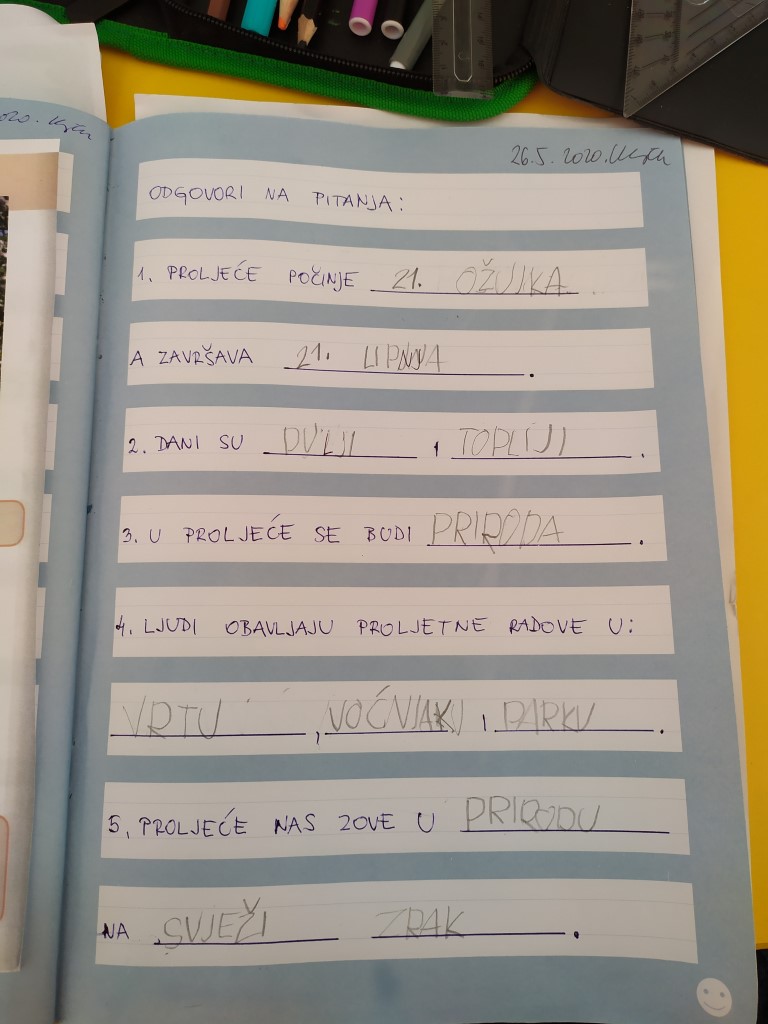 26.5. 2020.
ODGOVORI NA PITANJA:
1. PROLJEĆE POČINJE 21. OŽUJKA
A ZAVRŠAVA 21. LIPNJA.
2. DANI SU DULJI I TOPLIJI.
3. U PROLJEĆE SE BUDI PRIRODA.
4. LJUDI OBAVLJAJU PROLJETNE RADOVE U:
VRTU, VOĆNJAKU I PARKU.
5. PROLJEĆE NAS ZOVE U PRIRODU
NA SVJEŽI ZRAK.